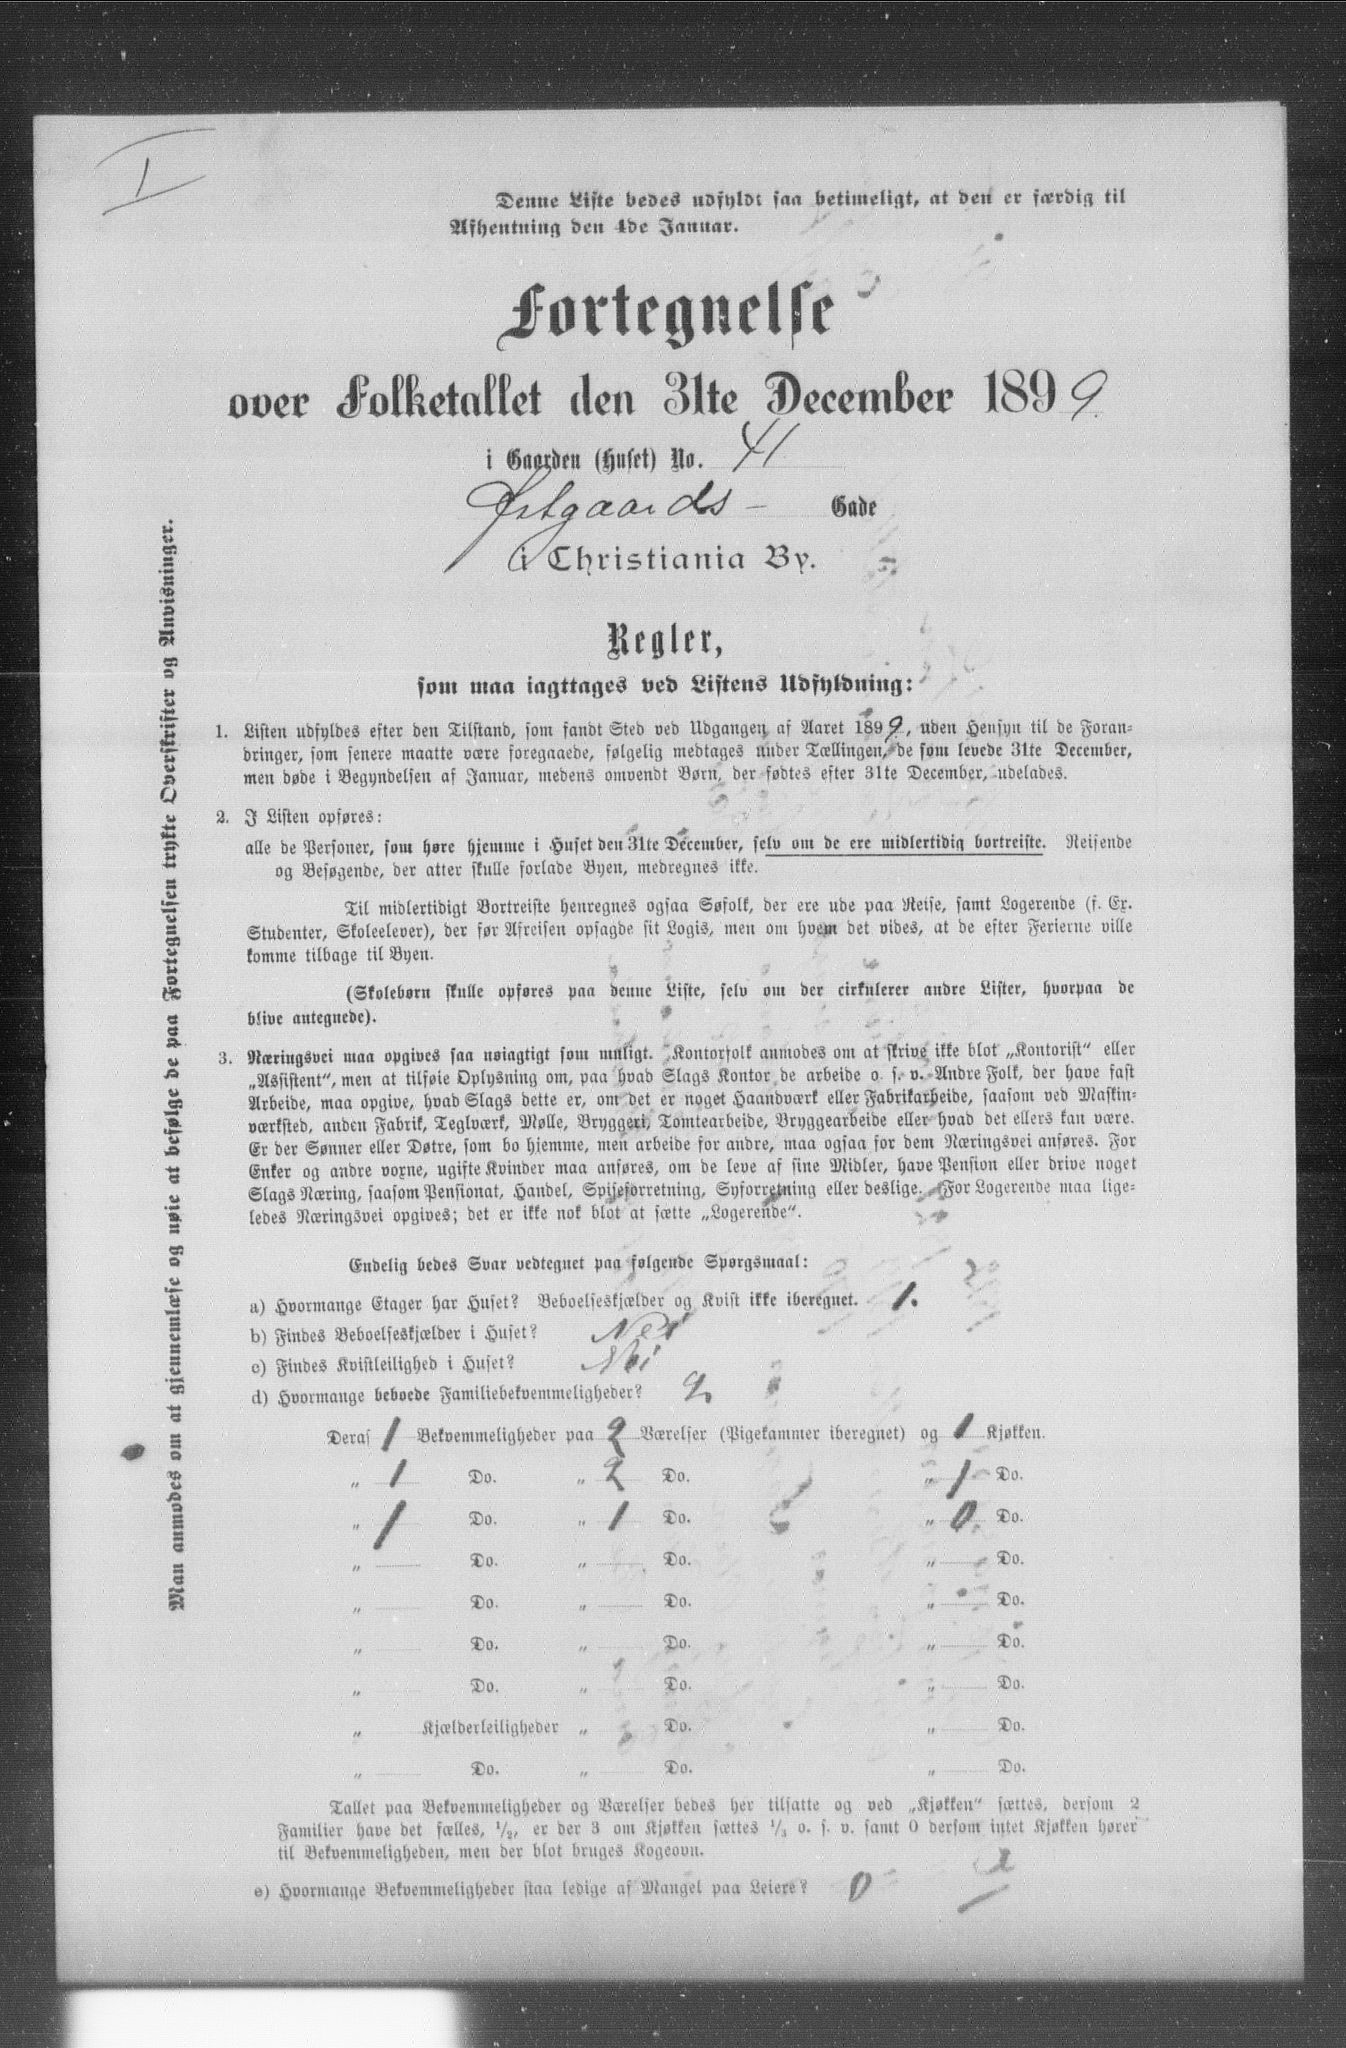 I
Denne Liste bedes udfyldt saa betimeligt, at den er færdig til
Afhentning den 4de Januar.
Fortegnelse
over Folketallet den 31te December 1899.
i Gaarden (Huset) No. 41
Østgaards- Gade
i Christiania By.
Regler,
som maa iagttages ved Listens Udfyldning:
1. Listen udfyldes efter den Tilstand, som fandt Sted ved Udgangen af Aaret 1899, uden Hensyn til de Foran-
dringer, som senere maatte være foregaaede, følgelig medtages under Tællingen, de som levede 31te December,
men døde i Begyndelsen af Januar, medens omvendt Børn, der fødtes efter 31te December, udelades.
2. I Listen opføres:
alle de Personer, som høre hjemme i Huset den 31te December, selv om de ere midlertidig bortreiste. Reisende
og Besøgende, der atter skulle forlade Byen, medregnes ikke.
Til midlertidigt Bortreiste henregnes ogsaa Søfolk, der ere ude paa Reise, samt Logerende (f. Ex.
Studenter, Skoleelever), der før Afreisen opsagde sit Logis, men om hvem det vides, at de efter Ferierne ville
komme tilbage til Byen.
(Skolebørn skulle opføres paa denne Liste, selv om der cirkulerer andre Lister, hvorpaa de
blive antegnede).
3. Næringsvei maa opgives saa nøiagtigt som muligt. Kontorfolk anmodes om at skrive ikke blot „Kontorist“ eller
„Assistent“, men at tilføie Oplysning om, paa hvad Slags Kontor de arbeide o. s. v. Andre Folk, der have fast
Arbeide, maa opgive, hvad Slags dette er, om det er noget Haandværk eller Fabrikarbeide, saasom ved Maskin-
værksted, anden Fabrik, Teglværk, Mølle, Bryggeri, Tomtearbeide, Bryggearbeide eller hvad det ellers kan være.
Er der Sønner eller Døtre, som bo hjemme, men arbeide for andre, maa ogsaa for dem Næringsvei anføres. For
Enker og andre voxne, ugifte Kvinder maa anføres, om de leve af sine Midler, have Pension eller drive noget
Slags Næring, saasom Pensionat, Handel, Spiseforretning, Syforretning eller deslige. For Logerende maa lige-
ledes Næringsvei opgives; det er ikke nok blot at sætte „Logerende“.
Endelig bedes Svar vedtegnet paa følgende Spørgsmaal:
a) Hvormange Etager har Huset? Beboelseskjælder og Kvist ikke iberegnet. 1.
b) Findes Beboelseskjælder i Huset? Nei
c) Findes Kvistleilighed i Huset? Nei
d) Hvormange beboede Familiebekvemmeligheder? 2
Deraf 1 Bekvemmeligheder paa 2 Værelser (Pigekammer iberegnet) og 1 Kjøkken.
„ 1 Do. „ 2 Do. „ 1 Do.
„ 1 Do. „ 1 Do. „ 0. Do.
„ Do. „ Do. „ Do.
„ Do. „ Do. „ Do.
„ Do. „ Do. „ Do.
„ Do. „ Do. „ Do.
„ Kjælderleiligheder „ Do. „ Do.
„ Do. „ Do. „ Do.
Tallet paa Bekvemmeligheder og Værelser bedes her tilsatte og ved „Kjøkken“ sættes, dersom 2
Familier have det fælles, 1/2, er der 3 om Kjøkken sættes 1/3 o. s. v. samt 0 dersom intet Kjøkken hører
til Bekvemmeligheden, men der blot bruges Kogeovn.
e) Hvormange Bekvemmeligheder staa ledige af Mangel paa Leiere? 0
Man anmodes om at gjennemlæse og nøie at befølge de paa Fortegnelsen trykte Overskrifter og Anvisninger.